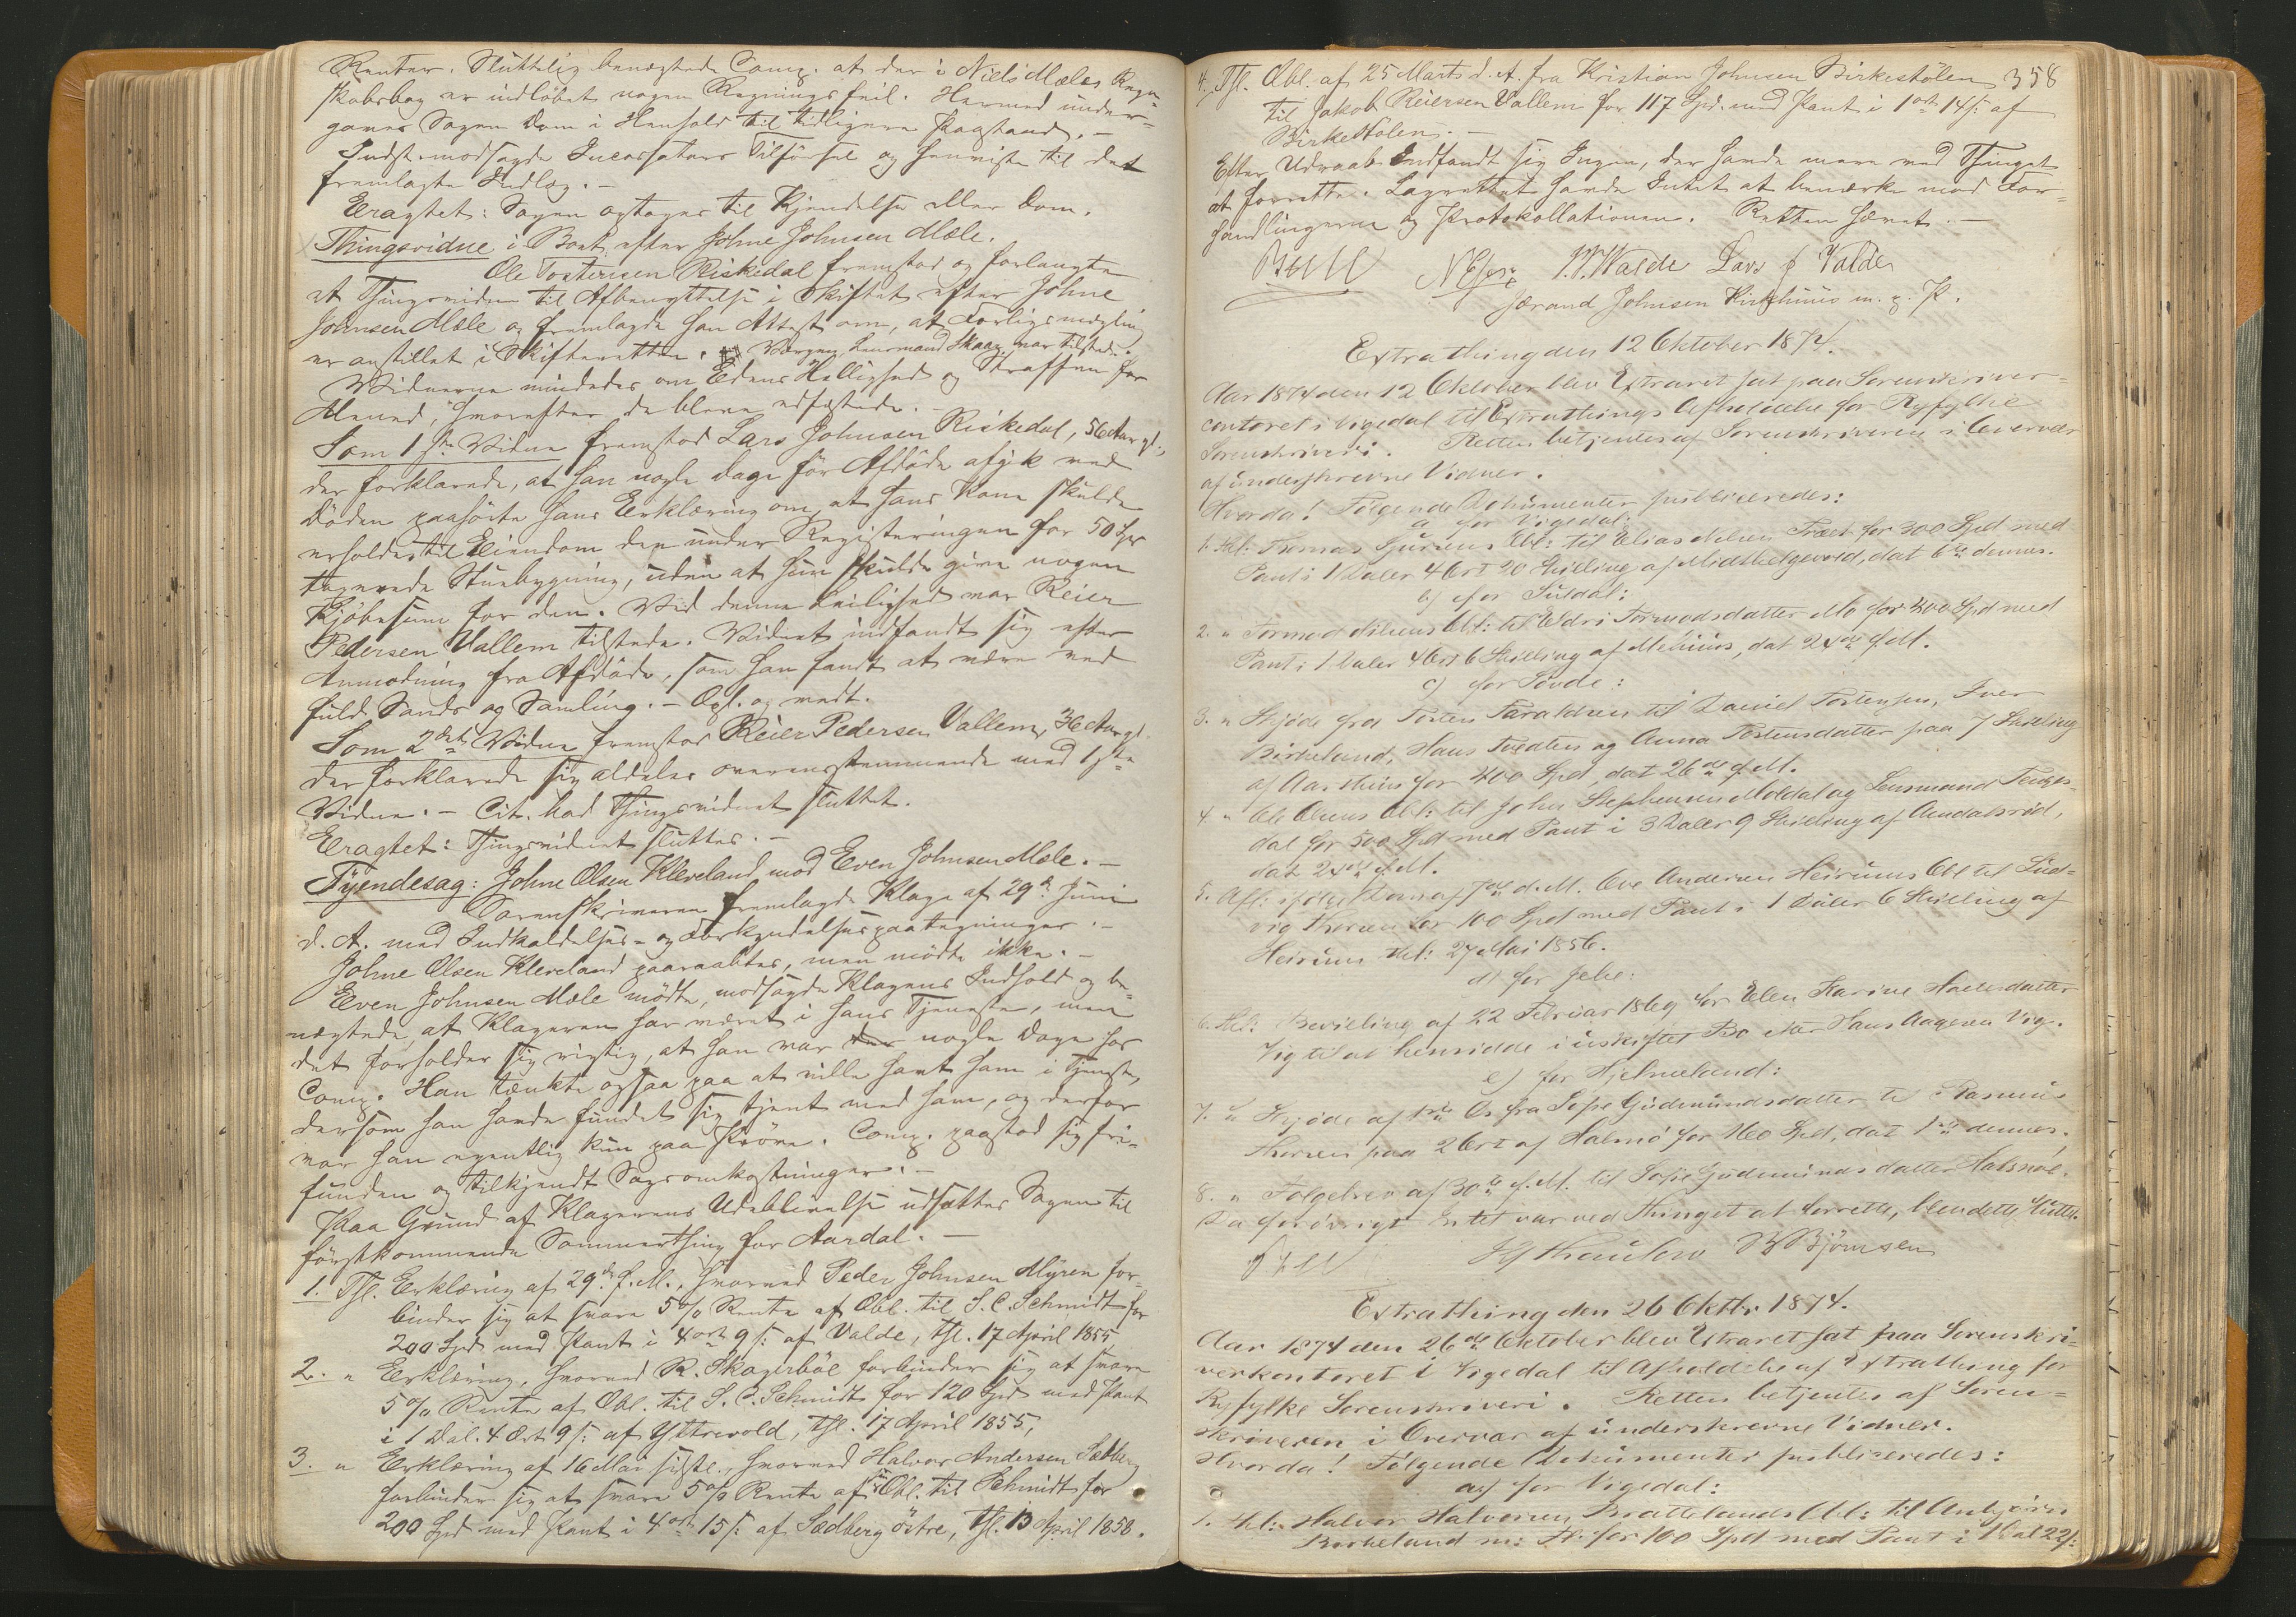 Renter. Sluttelig benægtede Comp. at der i Niels Mæles Regn-
skabsbog er indløbet nogen Regningsfeil. Hermed under-
gaves Sagen Dom i Henhold til tidligere Paastand. –
Indst. modsagde Incassators Tilførsel og henviste til det
fremlagte Indlæg. –
Eragtet: Sagen optages til Kjendelse eller Dom.
Thingsvidne i Boet efter Johne Johnsen Mæle.
Ole Tostensen Riskedal fremstod og forlangte
et Thingsvidne til Afbenyttelse i Skiftet efter Johne
Johnsen Mæle og fremlagde han Attest om, at Forligsmægling
er anstillet i Skifteretten. Værgen, Lensmand Skaar var tilstede.
Vidnerne mindedes om Edens Hellighed og Straffen for
Mened, hvorefter de bleve edfæstede. –
Som 1ste Vidne fremstod Lars Johnsen Riskedal, 56 Aar gl.,
der forklarede, at han nogle Dage før Afdøde afgik ved
Døden paahørte hans Erklæring om, at hans Kone skulde
erholde til Eiendom den under Registeringen for 50 Spd
taxerede Stuebygning, uden at hun skulde give nogen
Kjøbesum for den. Ved denne Leilighed var Reier
Pedersen Vallem tilstede. Vidnet indfandt sig efter
Anmodning fra Afdøde, som han fandt at være ved
fuld Sands og Samling. – Opl. og vedt.
Som 2det Vidne fremstod Reier Pedersen Vallem, 36 Aar gl.
der forklarede sig aldeles overensstemmende med 1ste
Vidne. – Cit. bad Thingsvidnet sluttet.
Eragtet: Thingsvidnet sluttes. –
Tyendesag: Johne Olsen Kleveland mod Even Johnsen Mæle. –
Sorenskriveren fremlagde Klage af 29de Juni
d. A. med Indkaldelses- og Forkyndelsespaategninger. –
Johne Olsen Kleveland paaraabtes, men mødte ikke. –
Even Johnsen Mæle mødte, modsagde Klagens Indhold og be-
nægtede, at Klageren har været i hans Tjeneste, men
det forholder sig rigtig, at han var nogle Dage hos
Comp. Han tænkte ogsaa paa at ville havt ham i Tjeneste,
dersom han havde fundet sig tjent med ham, og derfor
var han egentlig kun paa Prøve. Comp. paastod sig fri-
funden og tilkjendt Sagsomkostninger. –
Paa Grund af Klagerens Udeblivelse udsættes Sagen til
førstkommende Sommerthing for Aardal. –
1. Thl. Erklæring af 29de f. M., hvorved Peder Johnsen Myren for-
binder sig at svare 5 % Rente af Obl. til S. C. Schmidt for
200 Spd med Pant i 4 ort 9 s: af Valde, thl. 17 April 1855
2. " Erklæring, hvorved R. Skagerbøe forbinder sig at svare
5 % Rente af Obl. til S. C. Schmidt for 120 Spd med Pant
i 1 Dal. 4 Ort 9 s: af Yttrevold, thl. 17 April 1855,
3. " Erklæring af 16 Mai sidstl., hvorved Halvor Andersen Sedberg
forbinder sig at svare 5 % Rente af sin Obl. til Schmidt for
200 Spd med Pant i 4 ort 15 s: af Sedberg østre, thl. 13 April 1858.
358
4. Thl. Obl. af 25 Marts d. A. fra Kristian Johnsen Birkestølen
til Jakob Reiersen Vallem for 117 Spd. med Pant i 1 ort 14 s: af
Birkestølen. –
Efter Udraab indfandt sig Ingen, der havde mere ved Thinget
at forrette. Lagrettet havde Intet at bemærke mod For-
handlingerne og Protokollationen. Retten hævet. –
Bull Lars J Valde
Jærand Johnsen m. p. P.
Extrathing den 12 Oktober 1874.
Aar 1874 den 12 Oktober blev Extraret sat paa Sorenskriver-
contoret i Vigedal til Extrathings Afholdelse for Ryfylke
Sorenskriveri. Retten betjentes af Sorenskriveren i Overvær
af underskrevne Vidner.
Hvorda! Følgende Dokumenter publiceredes:
a for Vigedal:
1. Thl: Thomas Sjursens Obl: til Elias Nilsen Træet for 300 Spd med
Pant i 1 Daler 4 Ort 20 Skilling af Midthelgevold, dat 6te dennes.
b) for Suldal:
2. " Tormod Nilsens Obl: til Eldri Tormodsdatter Mo for 400 Spd med
Pant i 1 Daler 4 Ort 6 Skilling af Mehuus, dat 24de f. M.
c) for Søvde:
3. " Skjøde fra Torsten Taraldsen til Daniel Torstensen, Iver
Birkeland, Hans Tvedten og Anna Torstensdatter paa 7 Skilling
af Aarsthun for 400 Spd, dat 26de f. M.
4. " Ole Olsens Obl: til John Stephensen Moldal og Lensmand
dal for 500 Spd med Pant i 3 Daler 9 Skilling af Amdalsrød,
dat 24de f. M.
5. Afl: ifølge Dom af 7de d. M. Ove Andersen Heirums Obl til Lud-
vig Thorsen for 100 Spd med Pant i 1 Daler 6 Skilling af
Heirum thl: 27 Mai 1856.
d) for Jelse:
6. Thl: Bevilling af 22 Februar 1869 for Elen Karine
Vig til at hensidde i uskiftet Bo efter Hans Aagesen Vig.
e) for Hjelmeland:
7. " Skjøde af fra Sofie Gudmundsdatter til Rasmus
Thorsen paa 2 Ort af Halsnø for 1600 Spd, dat 1ste dennes.
8. " Følgebrev af 30te f. M. til Sofie Gudmundsdatter Halsnøe.
Da forøvrigt Intet var ved Thinget at forrette, blev dette sluttet.
Bull B Bjørnsen
Extrathing den 26 Oktbr 1874.
Aar 1874 den 26de Oktober blev Extraret sat paa Sorenskri-
verkontoret i Vigedal til Afholdelse af Extrathing for
Ryfylke Sorenskriveri. Retten betjentes af Soren-
skriveren i Overvær af underskrevne Vidner.
Hvorda! Følgende Dokumenter publiceredes:
a) for Vigedal:
1. Thl: Halvor Halvorsen Brattelands Obl: til
Borkeland m: Fl: for 100 Spd med Pant i 1 Dal 22 s: